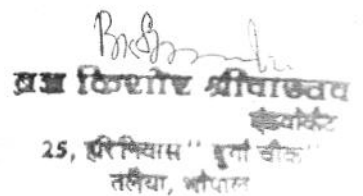 ब्रज किशोर श्रीवास्तव
एडवोकेट
25, हरि निवास " दुर्गा चौक "
तलैया, भोपाल